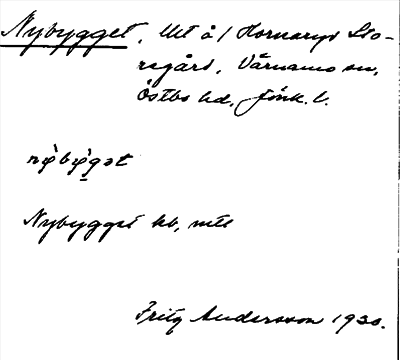 Nybygget, Utt å / Hornaryd Sto-
regård, Värnamo sn,
Östbo hd, Jönk. l.
nỳbỳgət
Nybygget kb, mtl
Fritz Andersson 1930.